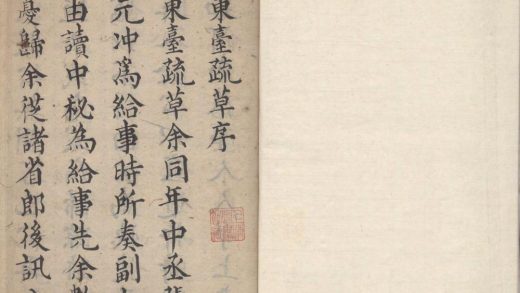 東臺疏草序
東臺疏草余同年中丞
元冲為給事時所奏副
由讀中秘為給事先余
憂歸余從諸省郎後訊